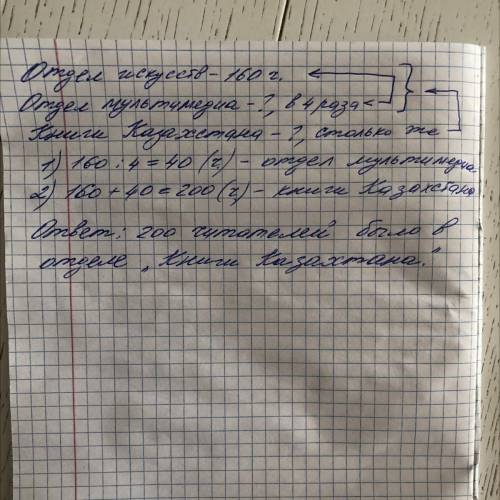 Отдел искусств - 160 г.
Отдел мультимедиа - ?, в 4 раза <
Книги Казахстана - ?, столько же
1) 160 : 4 = 40 (ч) - отдел мультимедиа
2) 160 + 40 = 200 (ч) - книги Казахстана
Ответ: 200 читателей было в
отделе „Книги Казахтана."